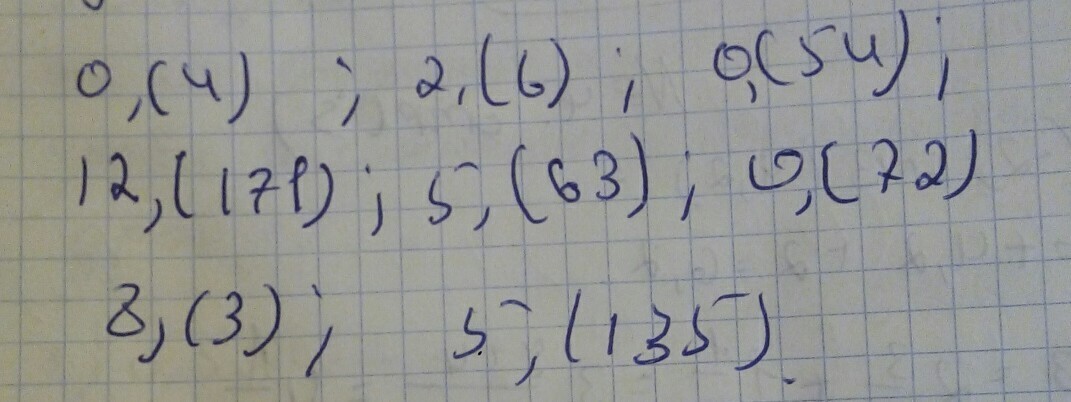 0,(4) ; 2,(6) ; 0,(54) ;
12,(171) ; 5,(63) ; 0,(72)
8,(3) ; 5,(135).